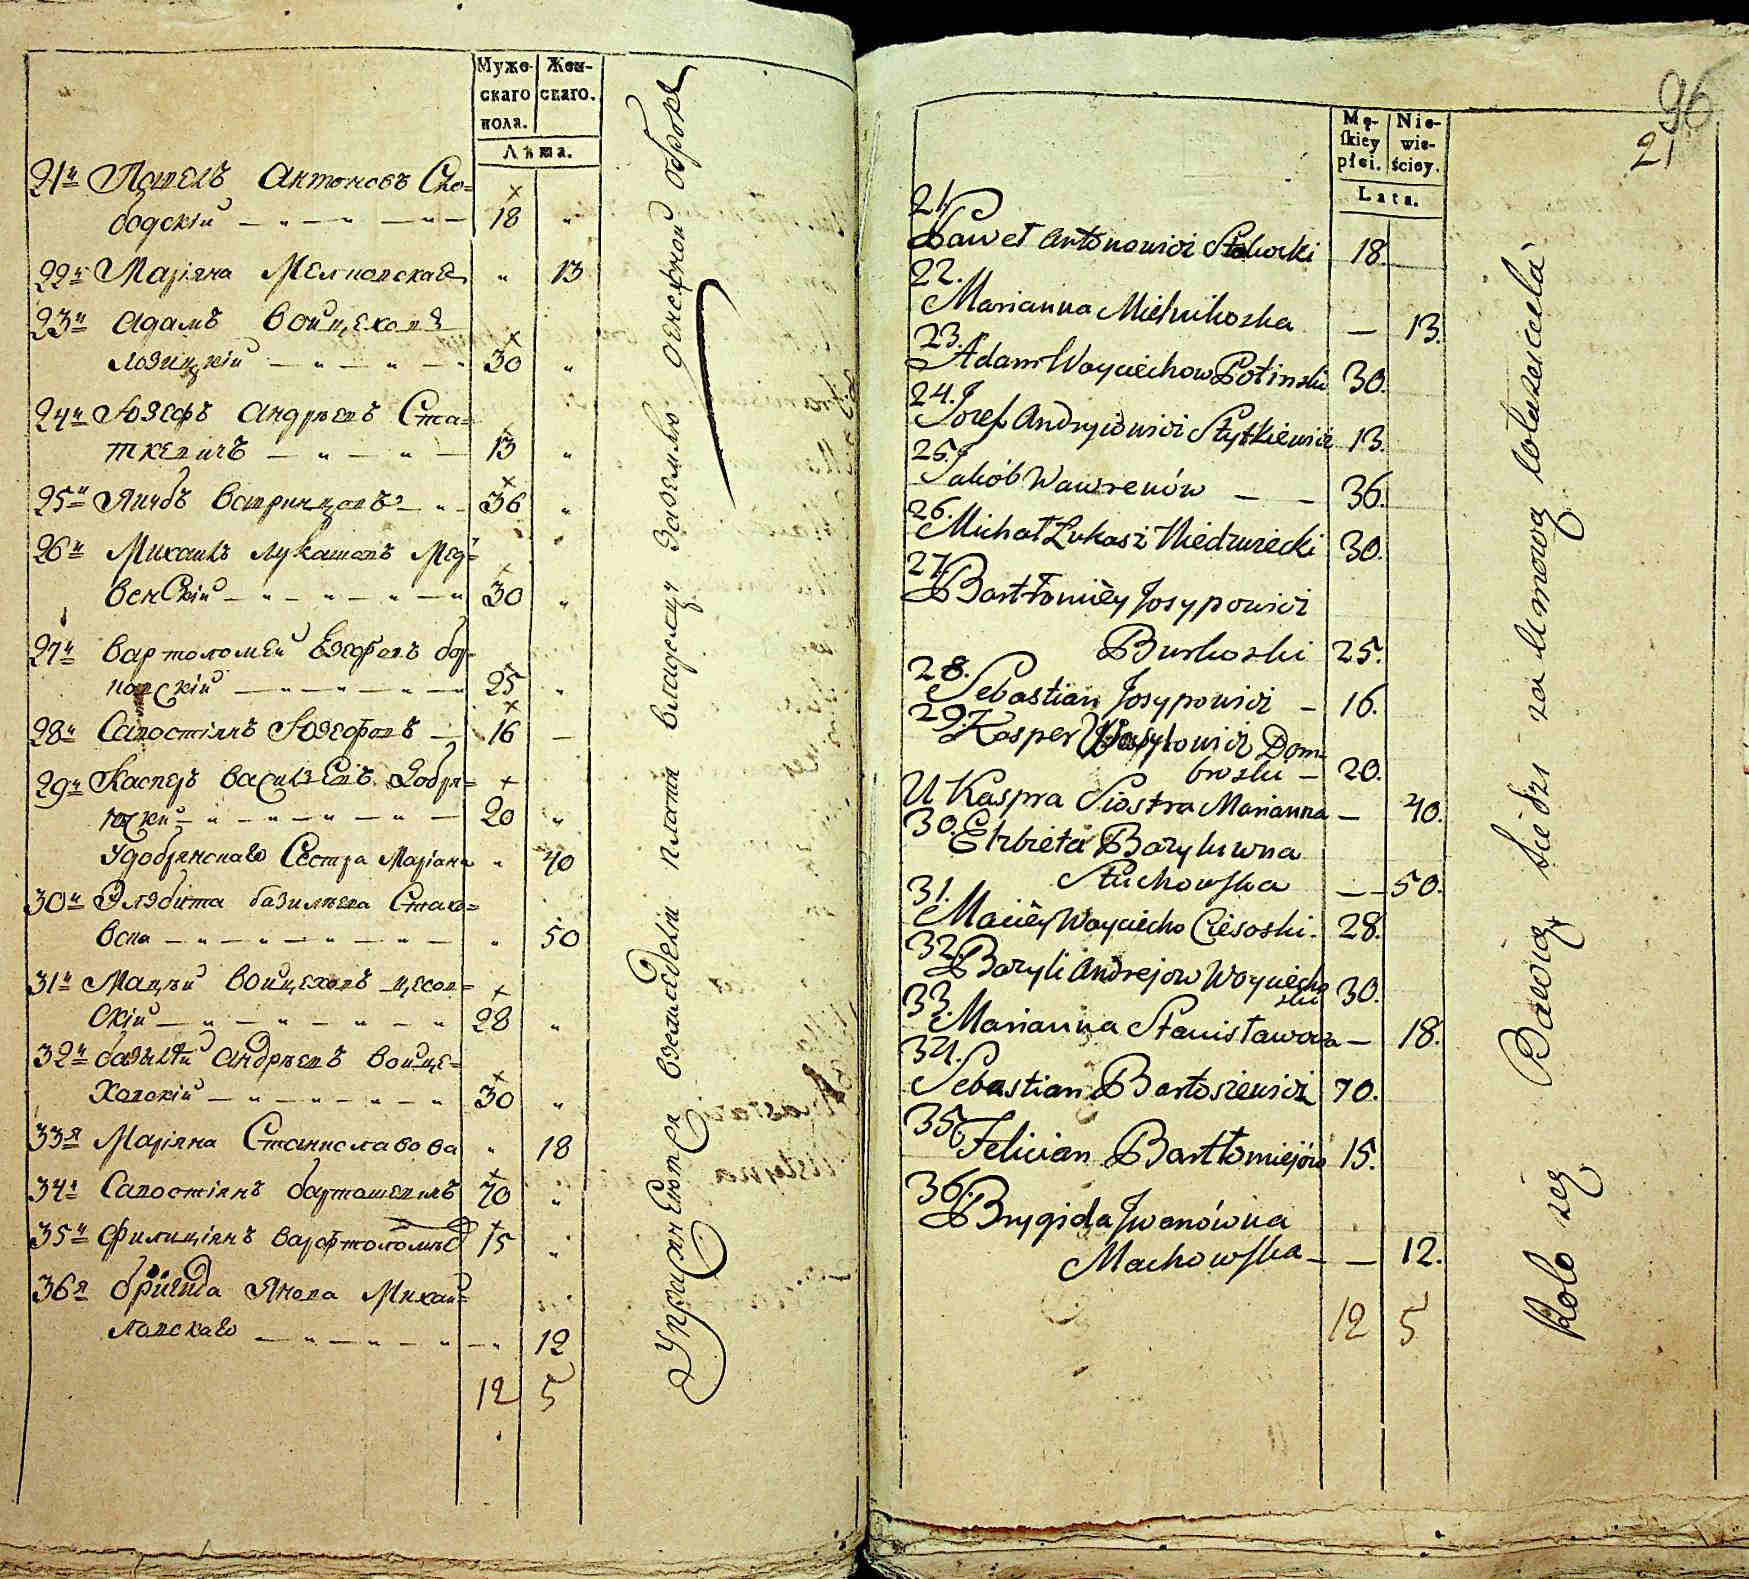 Муже- Жен-
скаго скаго.
пола.
Лѣта.
21й Павелъ Антоновъ Сло=
бодскій 18
22я Маріяна 13
23й Адамъ Войцеховъ
Лозицкій 30
24й Юзефъ Андреевъ Ста=
ткевичъ 13
25й 36
26й Михаилъ Лукашовъ Мед=
венскій 30
27й Вартоломей Юзефовъ Бор=
ковскій 25
28й Савостіянъ Юзефовъ 16
29й Касперъ Васильевъ Добря=
20
У Сестра Маріяна 40
30я Элзбѣта Базильева Стахо=
вска 50
31й Мацѣй Войцеховъ Цесов=
скій 28
32й Базылій Андреевъ Войце=
ховскій 30
33я Маріяна Станиславова 18
34й Савостіянъ Бартошевичъ 70
35й Филиціянъ Варфтоломѣ 15
36я Бригида Янова Михай=
ловскаго 12
12 5
владельца
96
21
Mę- Nie-
skiey wie-
płci. ściey.
Lata.
21.
Paweł Antonowicz 18.
22.
Marianna Mielnikoska — 13.
23.
Adam Woyciechow Łoźinski 30.
24.
Jozef Andryiowicz Stytkiewicz 13.
25.
Jakób Wawrenów — — 36.
26.
Michał Łukasz Niedzwiecki 30.
27.
Bartłomiéy Josypowicz
Burkoski 25.
28.
Sebastian Josypowicz — 16.
29. Kasper Wasylowicz Dom=
broski — 20.
U Kaspra Siostra Marianna — 40.
30. Elzbieta Bazylowna
Stachowska — — 50.
31.
Maciéy Woyciecho Ciesoski. 28.
32.
Bazyli Andrejow Woyciecho
ski 30.
33.
Marianna Stanisławowa — 18.
34.
Sebastian Bartosiewicz 70.
35.
Felician Bartłomiejów 15.
36.
Brygida Jwanówna
Machowska — — 12.
12 5
Koło się Bawią Siedzi za Umową właściciela